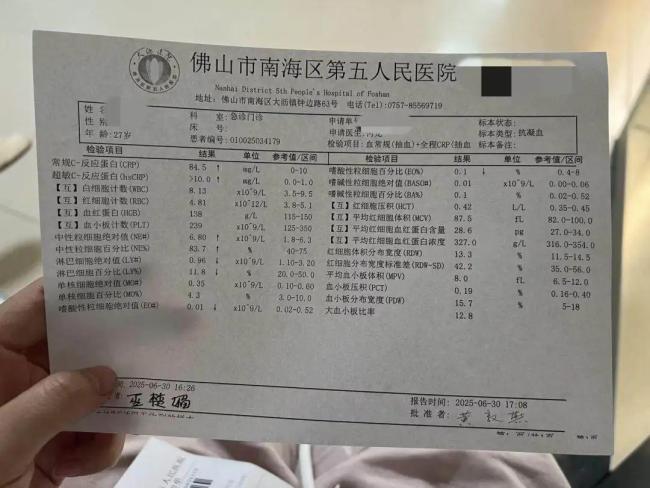 佛山市南海区第五人民医院
Nanhai District 5th People's Hospital of Foshan
地址: 佛山市南海区大沥镇钟边路63号 电话(Tel):0757-85569719
姓名: 科 室: 急诊门诊 申请单 标本状态:
性别: 床 号: 申请医 标本类型: 抗凝血
年龄: 27岁 患者编号: 010025034179 检验项目: 血常规(抽血)+全程CRP(抽血 标本备注:
检验项目 结果 单位 参考值/区间 检验项目 结果 单位 参考值/区间
常规C-反应蛋白(CRP) 84.5 ↑ mg/L 0-10 嗜酸性粒细胞百分比(EO%) 0.1 ↓ % 0.4-8
超敏C-反应蛋白(hsCRP) >10.0 ↑ mg/L 0.0-1.0 嗜碱性粒细胞绝对值(BASO#) 0.01 x10^9/L 0.00-0.06
【互】白细胞计数(WBC) 8.13 x10^9/L 3.5-9.5 嗜碱性粒细胞百分比(BA%) 0.1 % 0.02-0.52
【互】红细胞计数(RBC) 4.81 x10^12/L 3.8-5.1 【互】红细胞压积(HCT) 0.42 L/L 0.35-0.45
【互】血红蛋白(HGB) 138 g/L 115-150 【互】平均红细胞体积(MCV) 87.5 fL 82.0-100.0
【互】血小板计数(PLT) 239 x10^9/L 125-350 【互】平均红细胞血红蛋白含量 28.6 pg 27.0-34.0
中性粒细胞绝对值(NE#) 6.80 ↑ x10^9/L 1.8-6.3 【互】平均红细胞血红蛋白浓度 327.0 g/L 316.0-354.0
中性粒细胞百分比(NE%) 83.7 ↑ % 40-75 红细胞体积分布宽度(RDW) 13.3 % 11.5-14.5
淋巴细胞绝对值(LY#) 0.96 ↓ x10^9/L 1.10-3.20 红细胞分布宽度标准差(RDW-SD) 42.2 fL 35.0-56.0
淋巴细胞百分比(LY%) 11.8 ↓ % 20.0-50.0 平均血小板体积(MPV) 8.0 fL 6.5-12.0
单核细胞绝对值(MO#) 0.35 x10^9/L 0.10-0.60 血小板压积(PCT) 0.19 % 0.16-0.40
单核细胞百分比(MO%) 4.3 % 3.0-10.0 血小板分布宽度(PDW) 15.7 % 5-18
嗜酸性粒细胞绝对值(EO#) 0.01 ↓ x10^9/L 0.02-0.52 大血小板比率 12.8
时间: 2025-06-30 16:26 报告时间: 2025-06-30 17:08
者: 批 准 者: